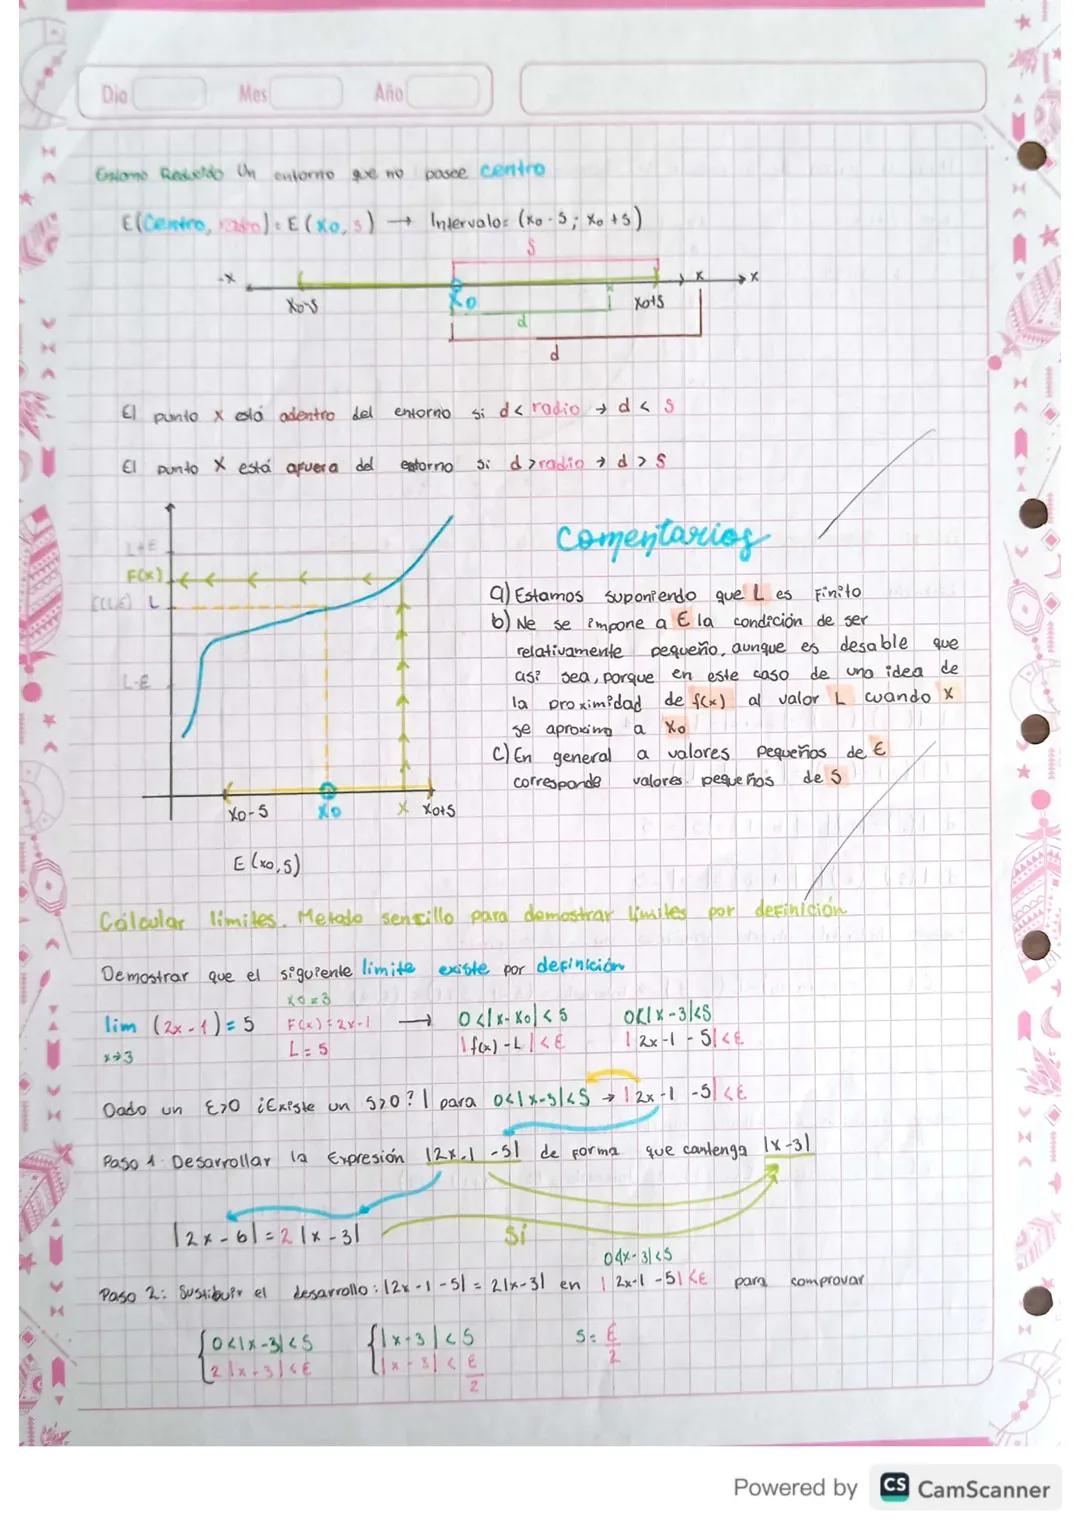 Dia
Mes
Año
Entorno Reducido Un entorno que no posee centro
E(Centro, radio) = E(xo, s) → Intervalo= (xo - s; xo + s)
S
-x
x
x
xo-s
xo
xo+s
d
d
El punto x está adentro del entorno si d< radio → d < s
El punto x está afuera del entorno si d > radio → d > s
comentarios
L+E
F(x)
E(L,E) L
L-E
a) Estamos suponiendo que L es Finito
b) Ne se impone a E la condición de ser
relativamente pequeño, aunque es desable que
así sea, porque en este caso de una idea de
la proximidad de f(x) al valor L cuando x
se aproxima a xo
c) En general a valores pequeños de E
corresponde valores pequeños de s
xo-s
xo
x
xo+s
E(xo,s)
Calcular límites. Metodo sencillo para demostrar límites por definición
Demostrar que el siguiente limite existe por definición
xo=3
lim (2x-1) = 5 F(x)=2x-1 → 0<|x-xo|<s 0<|x-3|<s
x→3 L=5 |f(x)-L|<E |2x-1-5|<E
Dado un E>0 ¿Existe un s>0? | para 0<|x-3|<s → |2x-1-5|<E
Paso 1 Desarrollar la Expresión |2x-1-5| de forma que contenga |x-3|
|2x-6|=2|x-3|
Sí
0<|x-3|<s
Paso 2: Sustibuir el desarrollo: |2x-1-5| = 2|x-3| en |2x-1-5|<E para comprovar
{0<|x-3|<s {|x-3|<s s= E/2
2|x-3|<E |x-3|< E/2
Powered by CS CamScanner